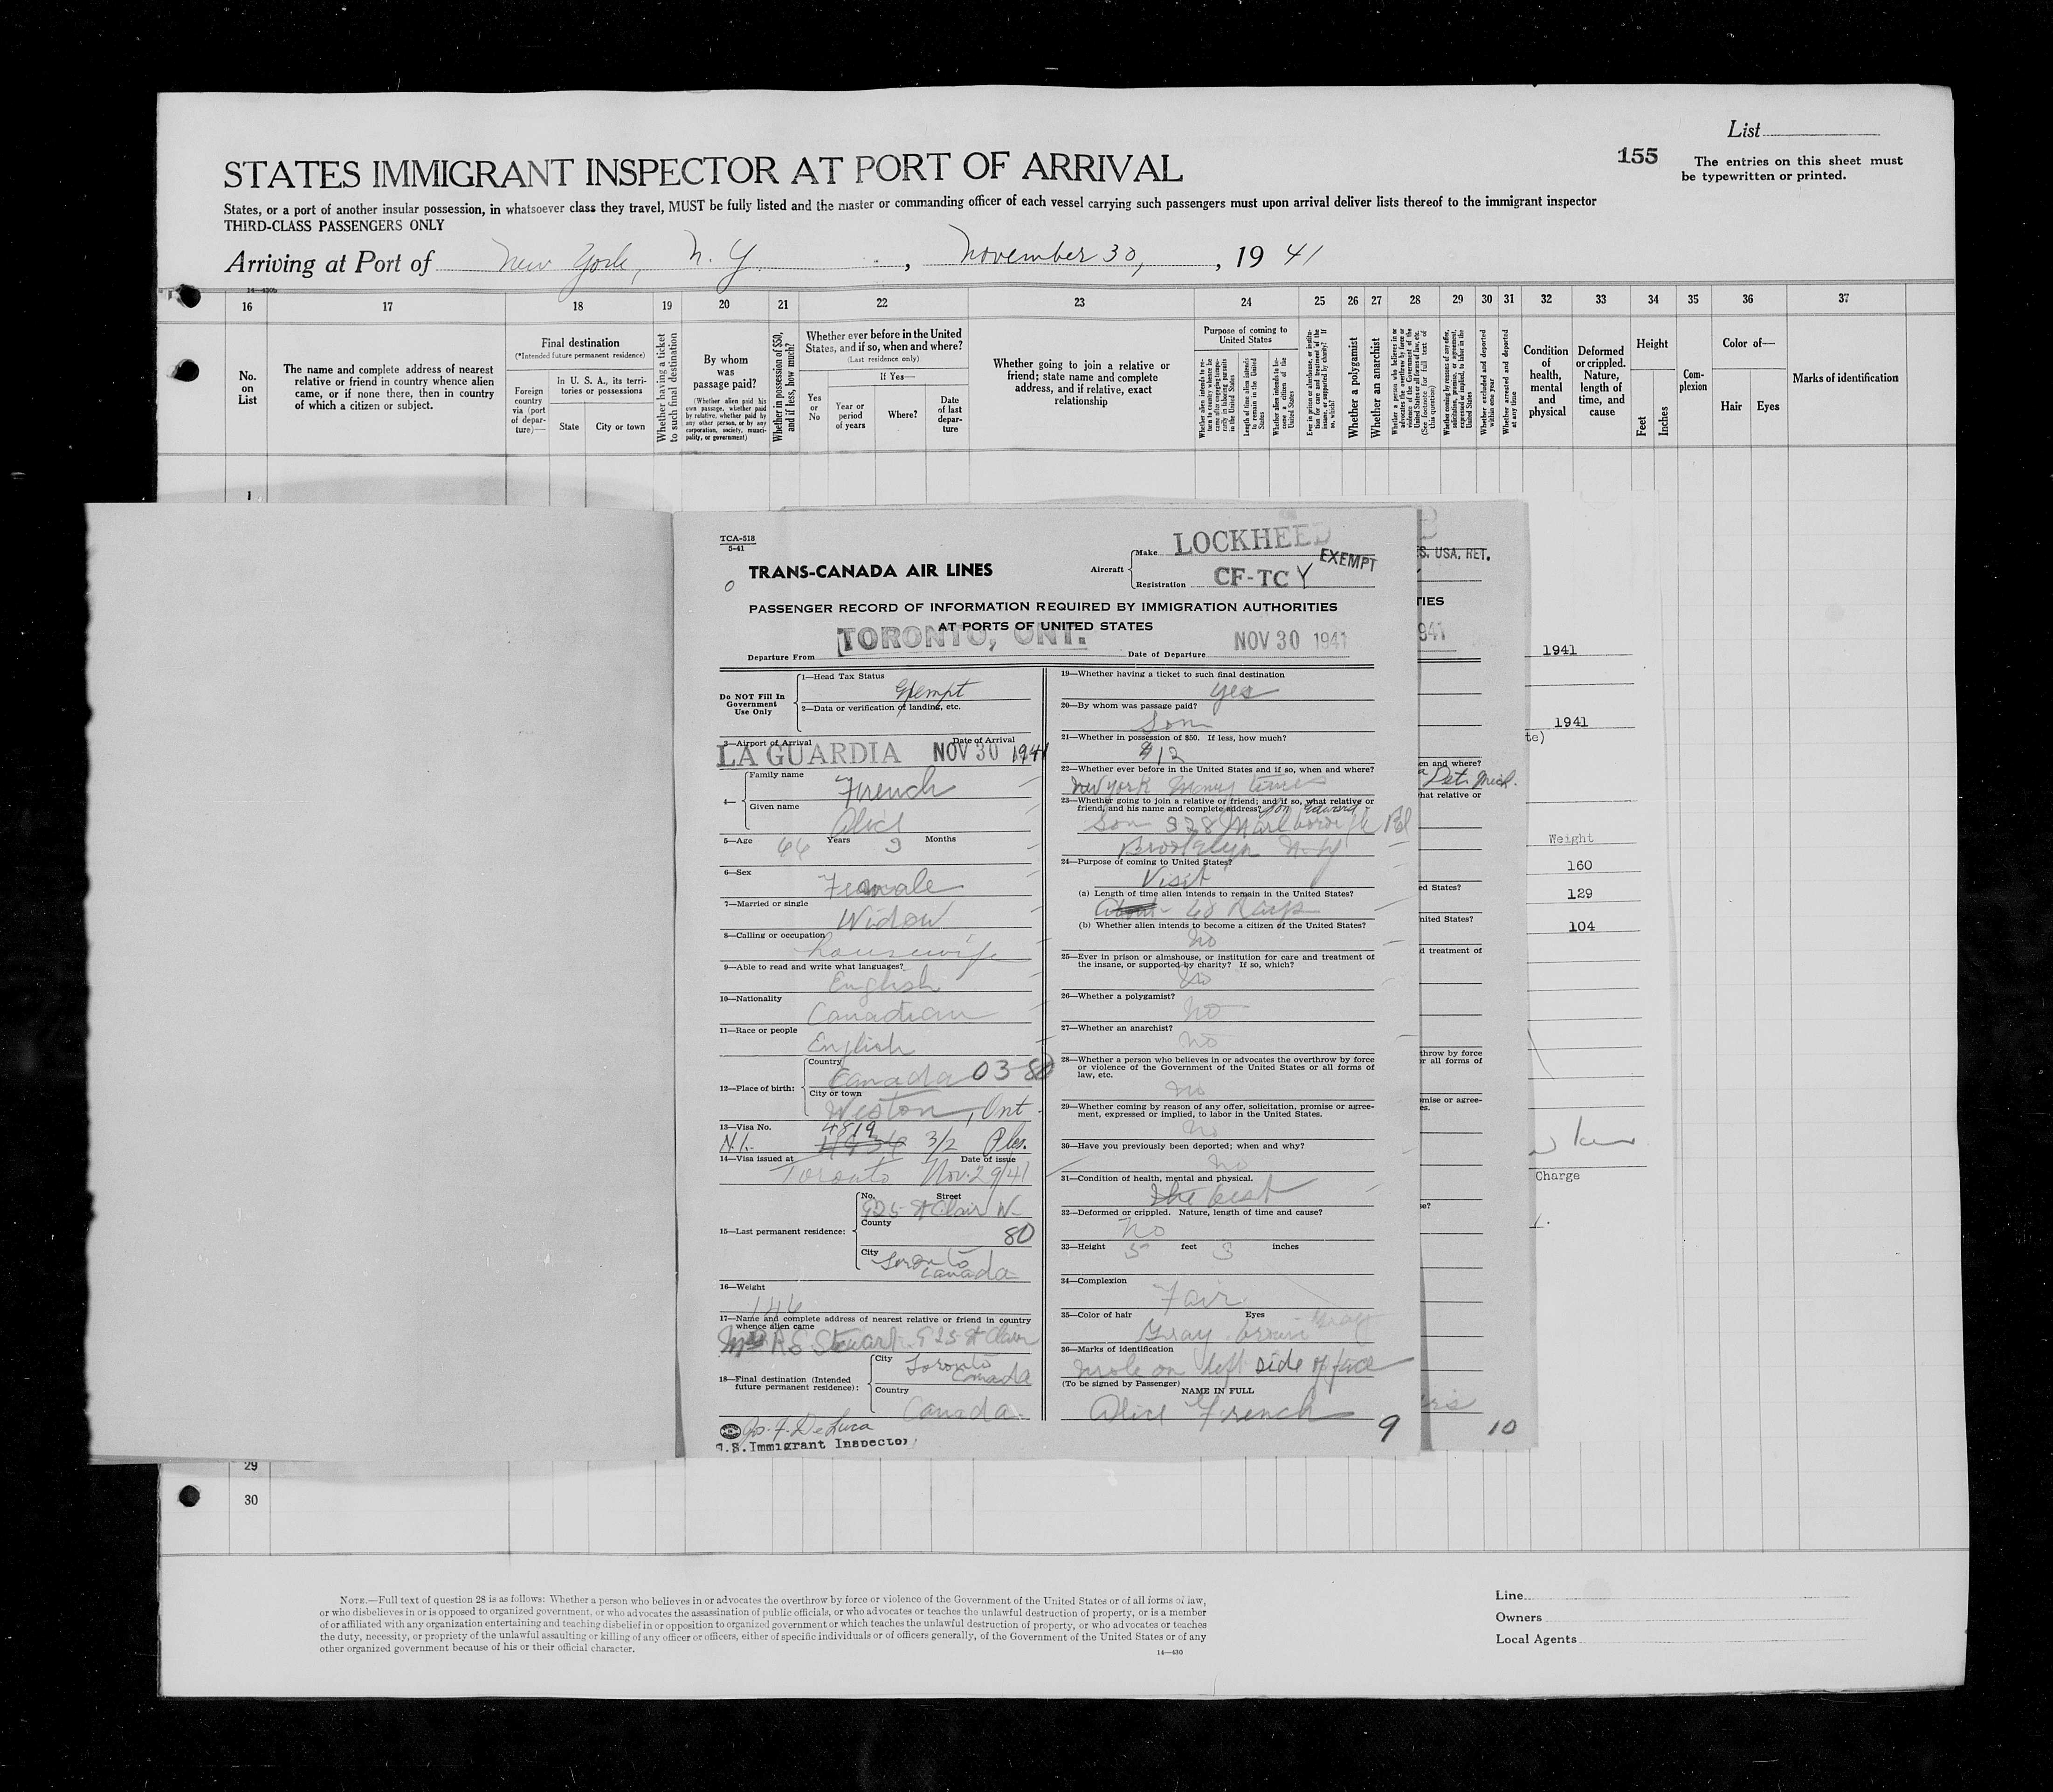 List
155
The entries on this sheet must
be typewritten or printed.
STATES IMMIGRANT INSPECTOR AT PORT OF ARRIVAL
States, or a port of another insular possession, in whatsoever class they travel, MUST be fully listed and the master or commanding officer of each vessel carrying such passengers must upon arrival deliver lists thereof to the immigrant inspector
THIRD-CLASS PASSENGERS ONLY
Arriving at Port of New York, N. Y. , November 30, , 19 41
16 17 18 19 20 21 22 23 24 25 26 27 28 29 30 31 32 33 34 35 36 37
No.
on
List
The name and complete address of nearest
relative or friend in country whence alien
came, or if none there, then in country
of which a citizen or subject.
Final destination
(*Intended future permanent residence)
Foreign
country
via (port
of depar-
ture)—
In U. S. A., its terri-
tories or possessions
State
City or town
Whether having a ticket
to such final destination
By whom
was
passage paid?
(Whether alien paid his
own passage, whether paid
by relative, whether paid by
any other person, or by any
corporation, society, munici-
pality, or government)
Whether in possession of $50,
and if less, how much?
Whether ever before in the United
States, and if so, when and where?
(Last residence only)
Yes
or
No
If Yes—
Year or
period
of years
Where?
Date
of last
depar-
ture
Whether going to join a relative or
friend; state name and complete
address, and if relative, exact
relationship
Purpose of coming to
United States
Whether a polygamist
Whether an anarchist
Condition
of
health,
mental
and
physical
Deformed
or crippled.
Nature,
length of
time, and
cause
Height
Feet
Inches
Com-
plexion
Color of—
Hair
Eyes
Marks of identification
1
TCA-518
5-41
TRANS-CANADA AIR LINES
Aircraft
Make LOCKHEED
EXEMPT
Registration CF-TC Y
PASSENGER RECORD OF INFORMATION REQUIRED BY IMMIGRATION AUTHORITIES
AT PORTS OF UNITED STATES
Departure From TORONTO, ONT.
Date of Departure NOV 30 1941
Do NOT Fill In
Government
Use Only
1—Head Tax Status
Exempt
2—Data or verification of landing, etc.
3—Airport of Arrival
Date of Arrival
LA GUARDIA NOV 30 1941
4—
Family name
French
Given name
Alice
5—Age 66 Years 9 Months
6—Sex
Female
7—Married or single
Widow
8—Calling or occupation
housewife
9—Able to read and write what languages?
English
10—Nationality
Canadian
11—Race or people
English
12—Place of birth:
Country
Canada 03-80
City or town
Weston, Ont
13—Visa No.
4819
3/2
14—Visa issued at
Date of issue
Toronto Nov. 29/41
15—Last permanent residence:
No. Street
925 St Clair W
County
80
City
Toronto
Canada
16—Weight
146
17—Name and complete address of nearest relative or friend in country
whence alien came
Stewart 925 St Clair
18—Final destination (Intended
future permanent residence):
City
Toronto
Canada
Country
Canada
Jos. F. DeLuca
U.S. Immigrant Inspector
19—Whether having a ticket to such final destination
yes
20—By whom was passage paid?
Son
21—Whether in possession of $50. If less, how much?
$12
22—Whether ever before in the United States and if so, when and where?
New York many times
23—Whether going to join a relative or friend; and if so, what relative or
friend, and his name and complete address?
Son 928 Marlborough Rd
Brooklyn N.Y
24—Purpose of coming to United States?
Visit
(a) Length of time alien intends to remain in the United States?
About 60 Days
(b) Whether alien intends to become a citizen of the United States?
No
25—Ever in prison or almshouse, or institution for care and treatment of
the insane, or supported by charity? If so, which?
No
26—Whether a polygamist?
No
27—Whether an anarchist?
No
28—Whether a person who believes in or advocates the overthrow by force
or violence of the Government of the United States or all forms of
law, etc.
No
29—Whether coming by reason of any offer, solicitation, promise or agree-
ment, expressed or implied, to labor in the United States.
No
30—Have you previously been deported; when and why?
No
31—Condition of health, mental and physical.
The best
32—Deformed or crippled. Nature, length of time and cause?
No
33—Height 5 feet 3 inches
34—Complexion
Fair
35—Color of hair Eyes
Gray brown Gray
36—Marks of identification
mole on left side of face
(To be signed by Passenger)
NAME IN FULL
Alice French
9
S. USA, RET.
TIES
941
en and where?
Det. Mich.
hat relative or
ed States?
nited States?
d treatment of
throw by force
r all forms of
mise or agree-
es.
se?
10
1941
1941
te)
Weight
160
129
104
Charge
29
30
NOTE.—Full text of question 28 is as follows: Whether a person who believes in or advocates the overthrow by force or violence of the Government of the United States or of all forms of law,
or who disbelieves in or is opposed to organized government, or who advocates the assassination of public officials, or who advocates or teaches the unlawful destruction of property, or is a member
of or affiliated with any organization entertaining and teaching disbelief in or opposition to organized government or which teaches the unlawful destruction of property, or who advocates or teaches
the duty, necessity, or propriety of the unlawful assaulting or killing of any officer or officers, either of specific individuals or of officers generally, of the Government of the United States or of any
other organized government because of his or their official character.
14—430
Line
Owners
Local Agents